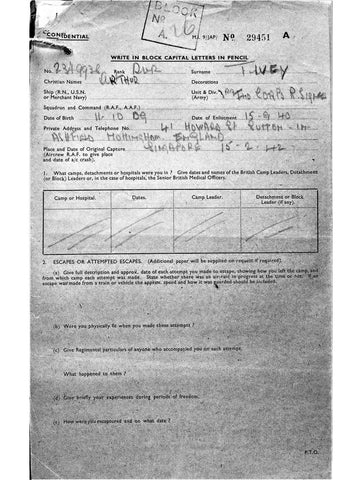 BLOCK
No
A
CONFIDENTIAL
M.I. 9/JAP/ No 29451 A
WRITE IN BLOCK CAPITAL LETTERS IN PENCIL
No. Rank DVR Surname TIVEY
Christian Names ARTHUR Decorations
Ship (R.N., U.S.N. or Merchant Navy) Unit & Div. (Army) CORPS R. SIGNALS
Squadron and Command (R.A.F., A.A.F.)
Date of Birth 11-10-09 Date of Enlistment 15-9-40
Private Address and Telephone No. 41 HOWARD ST SUTTON-IN-
ASHFIELD NOTTINGHAM. ENGLAND
Place and Date of Original Capture SINGAPORE 15-2-42
(Aircrew R.A.F. to give place
and date of a/c crash).
1. What camps, detachments or hospitals were you in? Give dates and names of the British Camp Leaders, Detachment
(or Block) Leaders or, in the case of hospitals, the Senior British Medical Officers.
Camp or Hospital. Dates. Camp Leader. Detachment or Block Leader (if any).
2. ESCAPES OR ATTEMPTED ESCAPES. (Additional paper will be supplied on request if required)
(a) Give full description and approx. date of each attempt you made to escape, showing how you left the camp, and
from which camp each attempt was made. State whether there was an air-raid in progress at the time or not. If an
escape was made from a train or vehicle the approx. speed and how it was guarded should be included.
(b) Were you physically fit when you made these attempts?
(c) Give Regimental particulars of anyone who accompanied you on each attempt.
What happened to them?
(d) Give briefly your experiences during periods of freedom.
(e) How were you recaptured and on what date?
P.T.O.